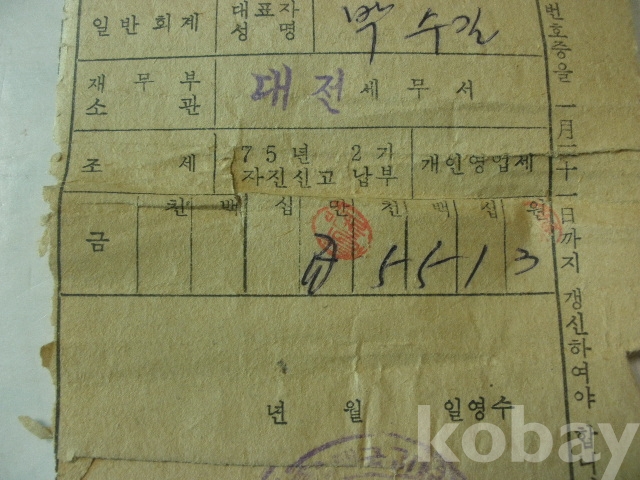 일반회계 대표자 성명 박수길
재무부 소관 대전세무서
조세 75년 2기 자진신고납부 개인영업세
천 백 십 만 천 백 십 원
금 5513
년 월 일영수
번호증을 一月二十一日까지 갱신하여야 합니
kobay